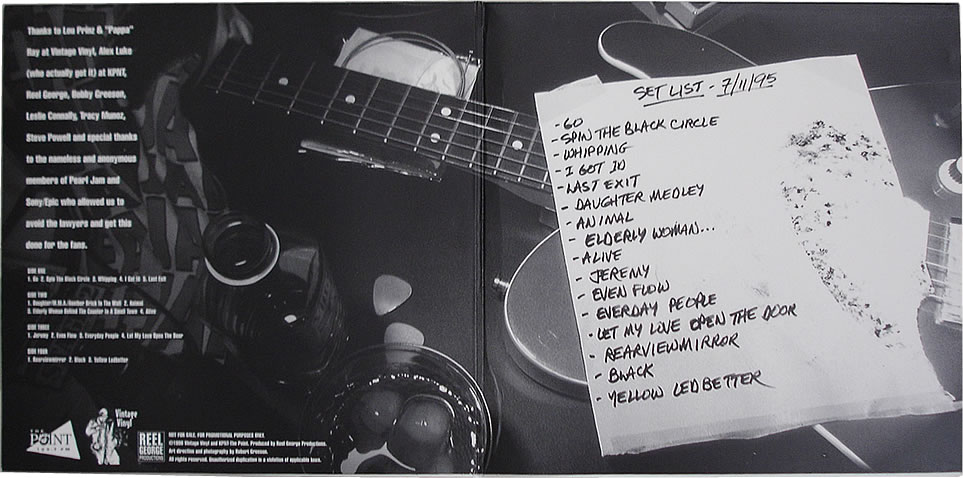 Thanks to Lou Prinz & "Pappa"
Ray at Vintage Vinyl, Alex Luke
(who actually got it) at KPNT,
Reel George, Bobby Greeson,
Leslie Connally, Tracy Munoz,
Steve Powell and special thanks
to the nameless and anonymous
members of Pearl Jam and
Sony/Epic who allowed us to
avoid the lawyers and get this
done for the fans.
SIDE ONE
1. Go 2. Spin The Black Circle 3. Whipping 4. I Got Id 5. Last Exit
SIDE TWO
1. Daughter/W.M.A./Another Brick In The Wall 2. Animal
3. Elderly Woman Behind The Counter In A Small Town 4. Alive
SIDE THREE
1. Jeremy 2. Even Flow 3. Everyday People 4. Let My Love Open The Door
SIDE FOUR
1. Rearviewmirror 2. Black 3. Yellow Ledbetter
THE
POINT
Vintage
Vinyl
REEL
GEORGE
PRODUCTIONS
NOT FOR SALE. FOR PROMOTIONAL PURPOSES ONLY.
Vintage Vinyl and KPNT-The Point. Produced by Reel George Productions.
Art direction and photography by Robert Greeson.
All rights reserved. Unauthorized duplication is a violation of applicable laws.
SET LIST - 7/11/95
- GO
- SPIN THE BLACK CIRCLE
- WHIPPING
- I GOT ID
- LAST EXIT
- DAUGHTER MEDLEY
- ANIMAL
- ELDERLY WOMAN...
- ALIVE
- JEREMY
- EVEN FLOW
- EVERDAY PEOPLE
- LET MY LOVE OPEN THE DOOR
- REARVIEWMIRROR
- BLACK
- YELLOW LEDBETTER